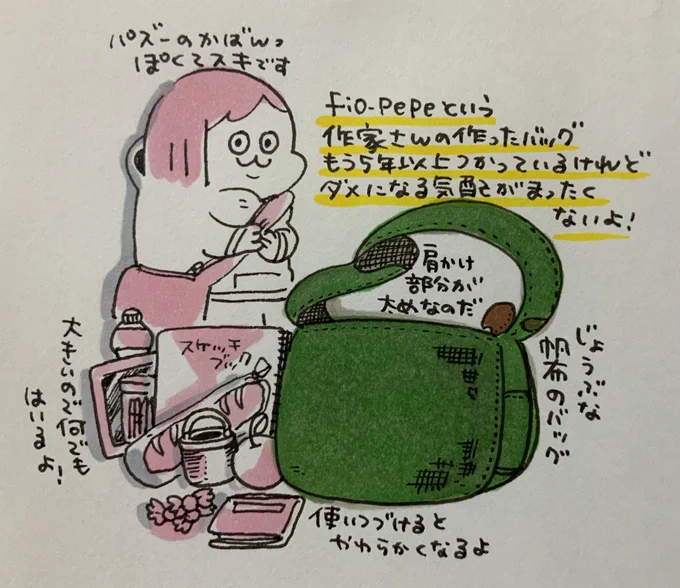 パズーのかばんっ
ぽくてスキです
fio-pepeという
作家さんの作ったバッグ
もう5年以上つかっているけれど
ダメになる気配がまったく
ないよ!
肩かけ
部分が
太めなのだ
じょうぶな
帆布のバッグ
スケッチ
ブック
大きいので何でも
はいるよ!
使いつづけると
やわらかくなるよ